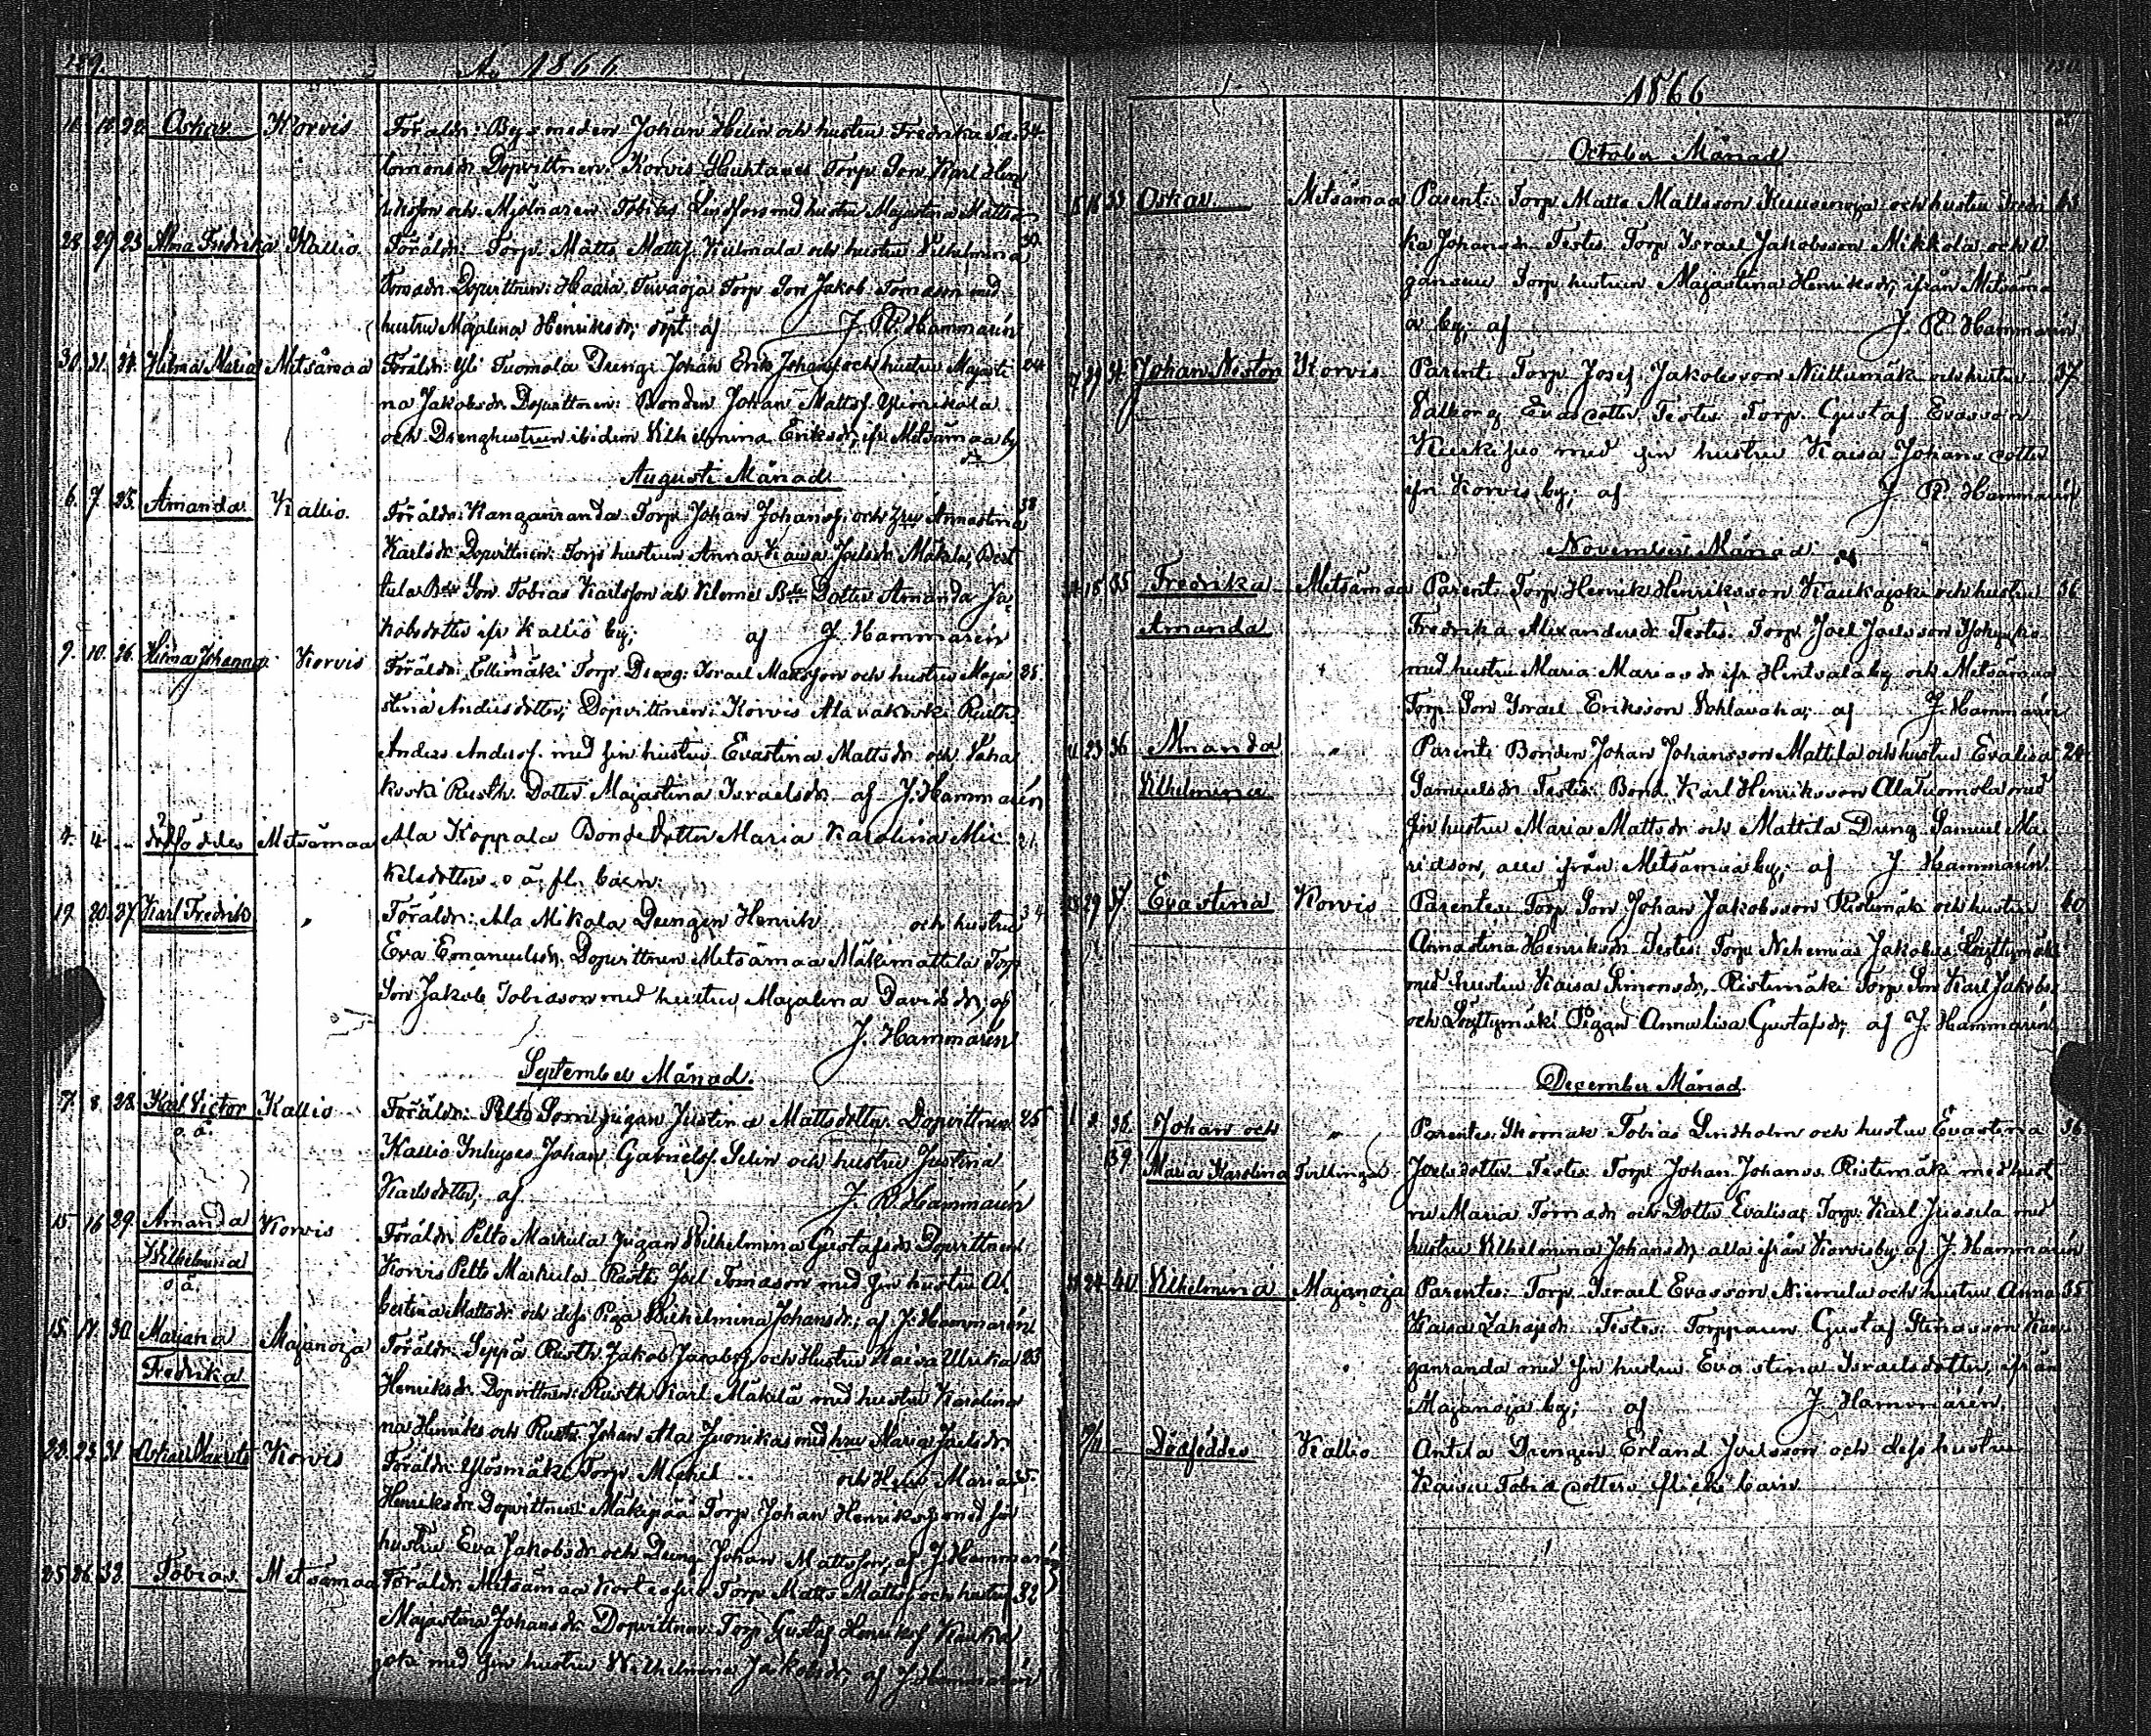 129.
Ao 1866.
11. 12. 20. Oskar Korvis Föräldr: Bysmeden Johan Helin och hustru Fredrika Sa= 34
lomonsdr. Dopvittnen: Korvis Torp. Son Karl Hen
riksson och Mjölnaren Tobias Lindfors med hustru Majastina Mattsdr
28. 29. 23. Alma Fredrika Kallio. Föräldr: Torp. Matts Mattsf. Kulmala och hustru Vilhelmina 30.
Tomasdr. Dopvittnen: Haaia Torp Son Jakob Tomason med
hustru Majalina Henriksdr; döpt af J. R. Hammarén
30. 31. 24. Hilma Maria Metsämaa Föräldr: Yli Tuomola Dreng: Johan Erik Johansf. och hustru Majasti 24
na Jakobsdr. Dopvittnen: Bonden Johan Mattsf. Ylimikola
och Drenghustrun ibidem Vilhelmina Eriksdr, ifr. Metsämaa by
Augusti Månad.
6. 7. 25. Amanda Kallio. Föräldr: Kanganranda Torp. Johan Johansf. och hru Annastina 38
Karlsdr. Dopvittnen: Torp hustrun Anna Kaisa Joelsdr Mäkilä,
tula Bde Son Tobias Karlsson och Kilemes Bde Dotter Amanda Ja=
kobsdotter ifr Kallio by; af J. Hammarén
9. 10. 26. Hilma Johanna Korvis Föräldr: Ellimäki Torp. Dreng: Israel Marksson och hustru Maja 25.
stina Andersdotter; Dopvittnen: Korvis Alavakoski Rusth.
Anders Andersf. med sin hustru Evastina Mattsdr. och Vaha
koski Rusth. Dotter Majastina Israelsdr. af J. Hammarén
4. 4. ... dödföddes Metsämaa Ala Koppala Bonde Dotter Maria Karolina Mic 21.
kelsdotters o ä. fl. barn.
19. 20. 27. Karl Fredrik " Föräldr: Ala Mikola Drengen Henrik och hustru 34
Eva Emanuelsdr. Dopvittnen Metsämaa Mäkimattila Torp
Son Jakob Tobiasson med hustru Majalina Davidsdr, af
J. Hammarén
September Månad.
7. 8. 28. Karl Victor Kallio Föräldr: Pelto Sorri pigan Justina Mattsdotter. Dopvittnen 25
o. ä.
Kallio Inhyses Johan Gabrielsf. Selin och hustru Justina
Karlsdotter, af J. R. Hammarén
15. 16. 29. Amanda Korvis Föräldr: Pelto Markula pigan Wilhelmina Gustafsdr. Dopvittnen:
Wilhelmina
o ä.
Korvis Pelto Markula Rusth: Joel Tomason med sin hustru Al
bertina Mattsdr. och dess Piga Wilhelmina Johansdr.; af J. Hammarén
15. 17. 30. Mariana Majanoja Föräldr: Seppä Rusth. Jakob Jacobsf. och Hustru Kaisa Ulrika 23
Fredrika
Henriksdr. Dopvittnen: Rusth Karl Mäkilä med hustru Karolina
na Henriks och Rusth: Johan Ala Juonikas med hru Maria Joelsdr
22. 23. 31. Oskar Maurits Korvis Föräldr: Ylösmäki Torp. Mickel .. och Hru Maria 35.
Henriksdr. Dopvittnen: Mäkipää Torp. Johan Henriksf. med sin
hustru Eva Jakobsdr och Dreng: Johan Mattsson, af J. Hammarén
25. 26. 32. Tobias Metsämaa Föräldr: Metsämaa Torp. Matts Mattsf. och hustru 32
Majastina Johansdr. Dopvittnen: Torp. Gustaf Henriksf Kauka
joki med sin hustru Wilhelmina Jakobsdr, af J. Hammarén
130.
1866
October Månad
33 Oskar Metsämaa Parent: Torp Matts Mattsson Kuusenoja och hustru Fredri 43
ka Johansdr. Testes. Torp. Israel Jakobsson Mikkola och
Torp. hustrun Majastina Henriksdr; ifrån Metsäma
a by; af J. R. Hammarén
34. Johan Nestor Korvis Parent: Torp Josef Jakobsson Niittumäk. och hustru 37
Valborg Evasdotter Testes. Torp. Gustaf Evasson
Kurkisuo med sin hustru Kaisa Johansdotter
ifr Korvis by; af J. R. Hammarén
November Månad
15 35 Fredrika Metsämaa Parent: Torp Henrik Henriksson Kaukajoki och hustru 36
Amanda Fredrika Alexandersdr. Testes. Torp. Joel Joelsson
med hustru Maria Mariasdr ifr. Hintsala by och Metsämaa
Torp. Son Israel Eriksson Vehlavaha; af J. Hammarén
23 36 Amanda " Parent: Bonden Johan Johansson Mattila och hustru Evalisa 24
Vilhelmina Samuelsdr. Testes: Bond. Karl Henriksson Ala Tuomola med
sin hustru Maria Mattsdr och Mattila Dreng Samuel Ma
ridson, alla ifrån Metsämaa by; af J. Hammarén.
29 37 Evastina Korvis Parentes: Torp. Son Johan Jakobsson Ristimäk. och hustru 40
Annastina Henriksdr. Testes: Torp. Nehemias Jakobss. Löyttymäki
med hustru Kaisa Simonsdr, Ristimäki Torp. Son Karl Jakobss.
och Löyttymäki Pigan Annalisa Gustafsdr; af J. Hammarén
December Månad.
1 2 38. Johan och " Parentes: Skomak. Tobias Lindholm och hustru Evastina 36
39 Maria Karolina Tvillingar Joelsdotter Testes: Torp Johan Johanss. Ristimäki med hust
ru Maria Tomasdr och Dotter Evalisa; Torp. Karl Jussila med
hustru Vilhelmina Johansdr, alla ifrån Korvis by; af J. Hammarén
24 40 Vilhelmina Majanoja Parentes: Torp. Israel Evasson Niemela och hustru Anna 35
Kaisa Zakrisdr. Testes: Torpparen Gustaf Stinasson Kan
ganranda med sin hustru Evastina Israelsdotter, ifrån
Majanoja by; af J. Hammarén.
19/11 Dödföddes Kallio Antila Drengen Erland Joelsson och dess hustru
Kaisa Tobiasdotters flicke barn